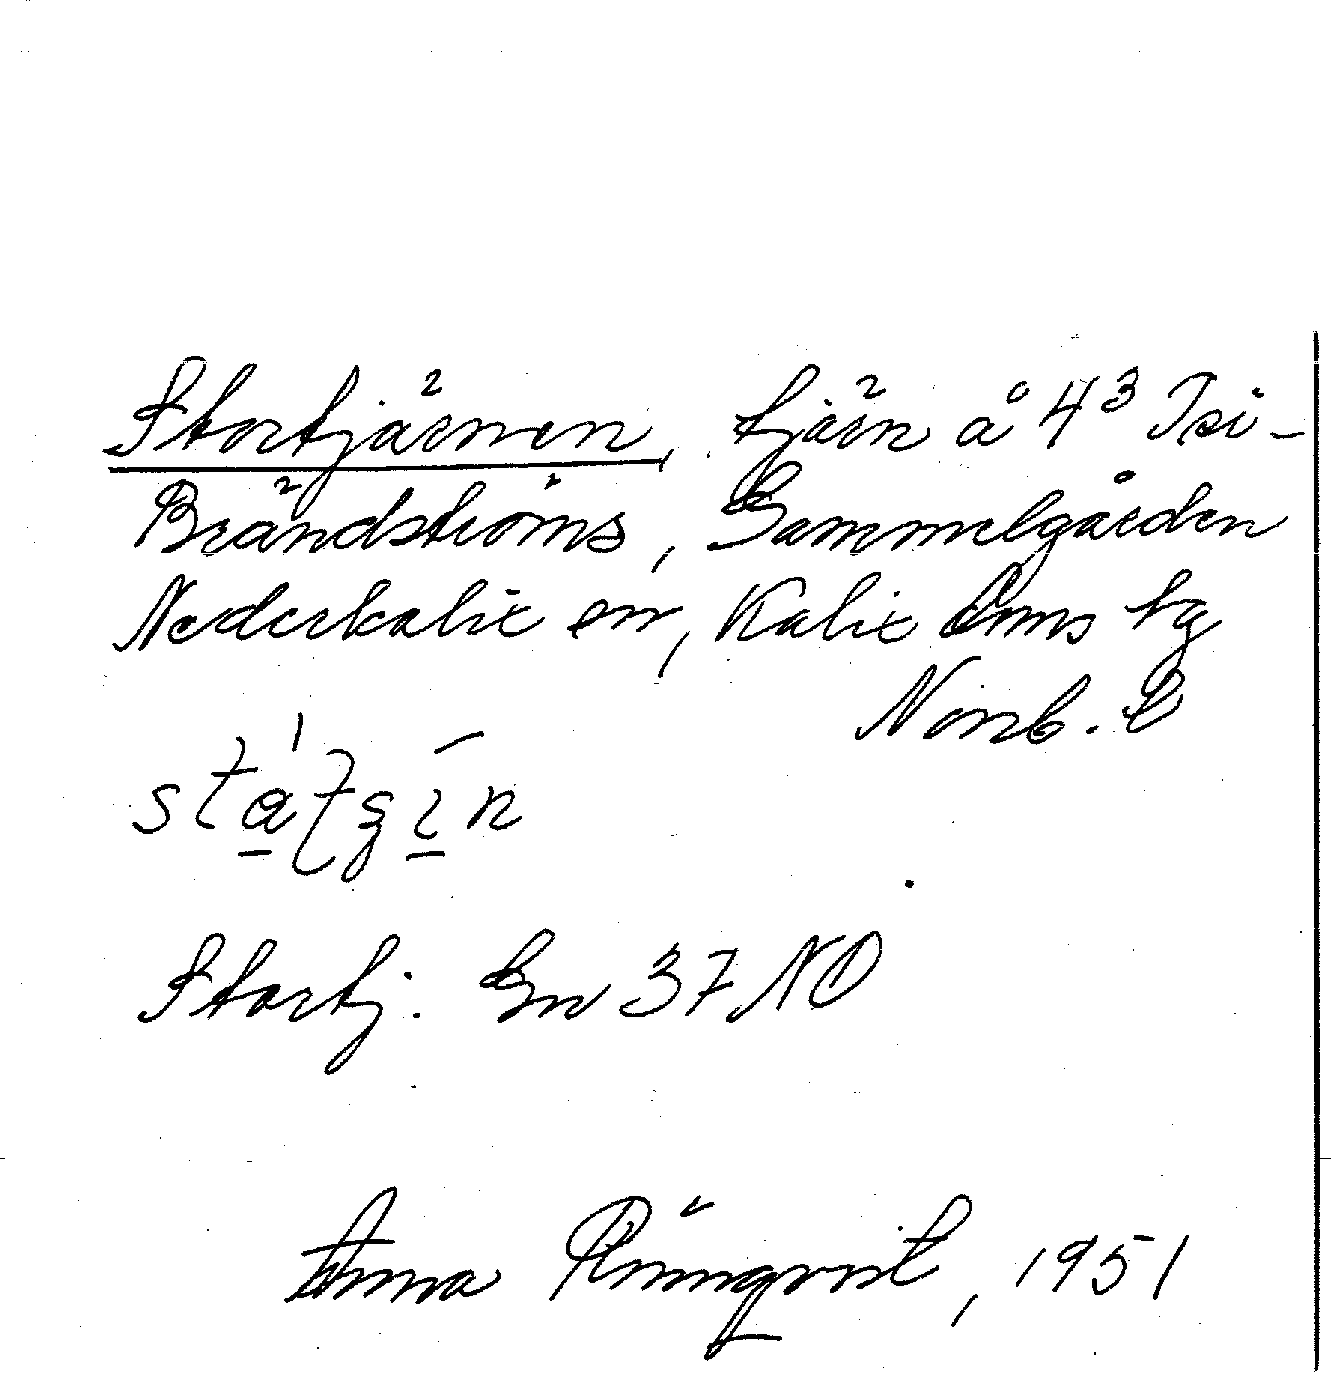 Stortjärnen, tjärn å 4³ Isi-
Brändströms, Gammelgården
Nederkalix sn, Kalix tg
Norrb. L
Stortj. Gn 37 NO
Anna Rönnqvist, 1951